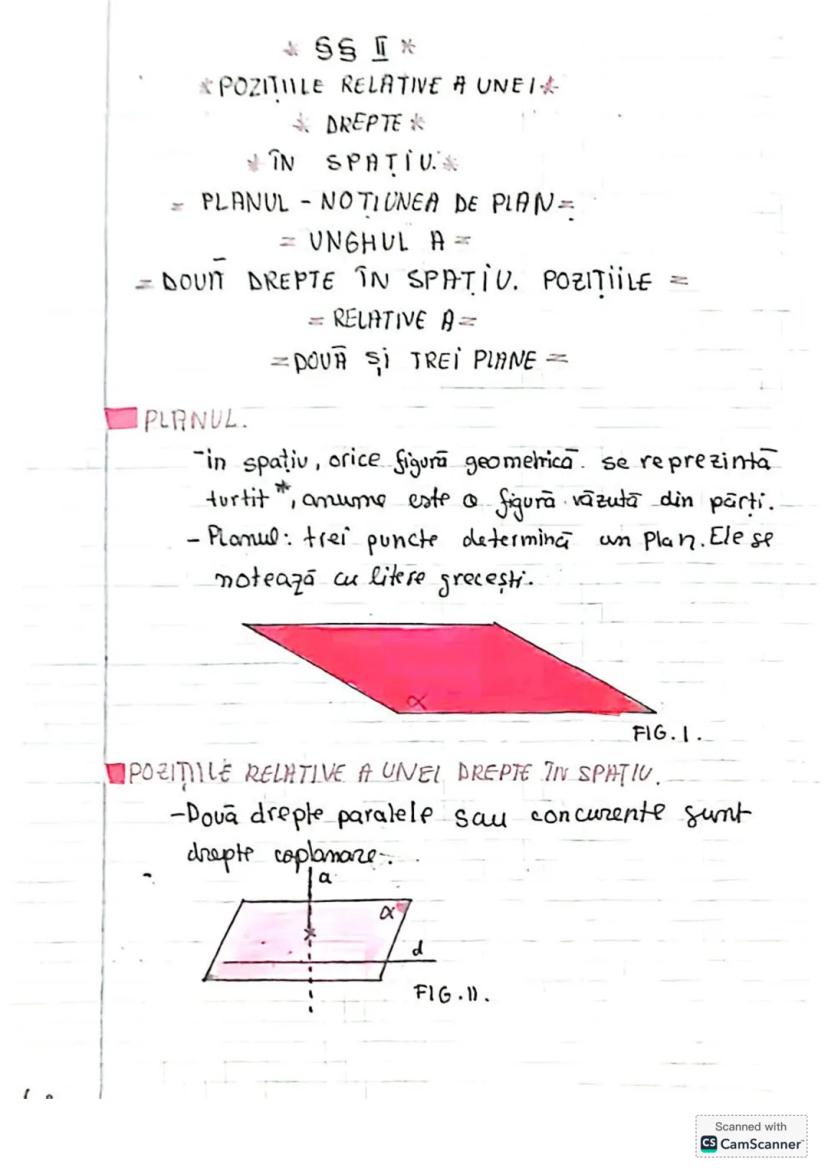 * §§ II *
* POZIȚIILE RELATIVE A UNEI *
* DREPTE *
* ÎN SPAȚIU. *
= PLANUL - NOȚIUNEA DE PLAN =
= UNGHUL A =
= DOUĂ DREPTE ÎN SPAȚIU. POZIȚIILE =
= RELATIVE A =
= DOUĂ ȘI TREI PLANE =
PLANUL.
-in spațiu, orice figură geometrică se reprezintă
turtit *, anume este o figură văzută din părți.
- Planul: trei puncte determină un Plan. Ele se
notează cu litere grecești.
α
FIG. I.
POZIȚIILE RELATIVE A UNEI DREPTE ÎN SPAȚIU.
-Două drepte paralele sau concurente sunt
drepte coplanare.
a
α
d
FIG. II.
Scanned with
CS CamScanner